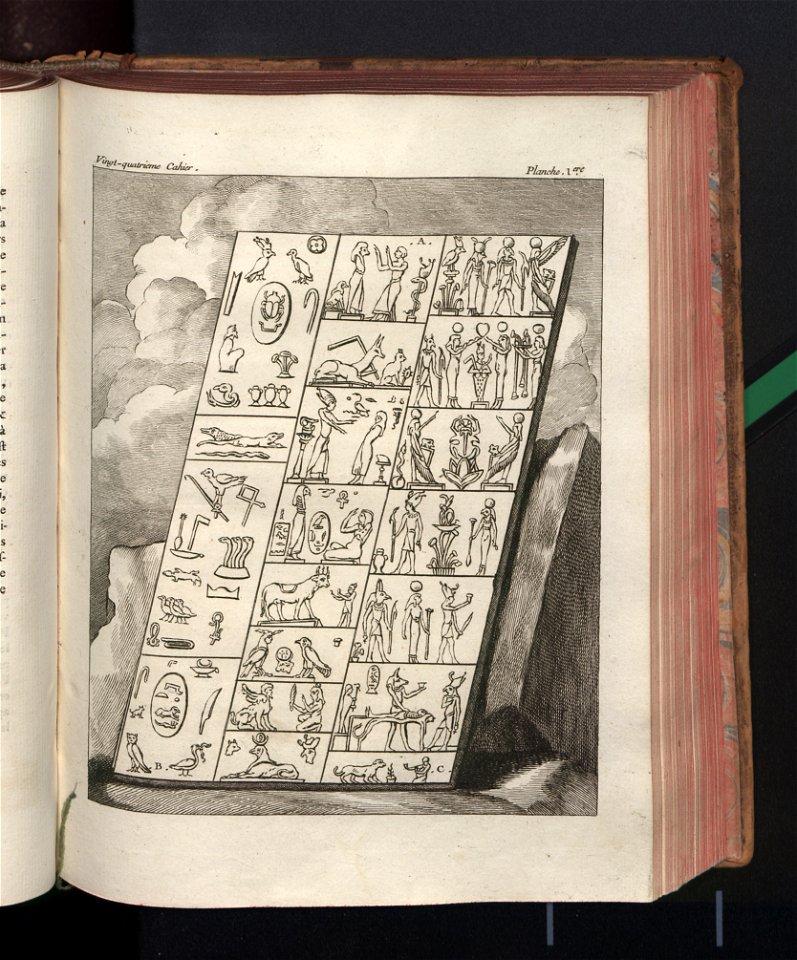 Vingt-quatrieme Cahier.
Planche. 1.ere
. A .
B .
. C .